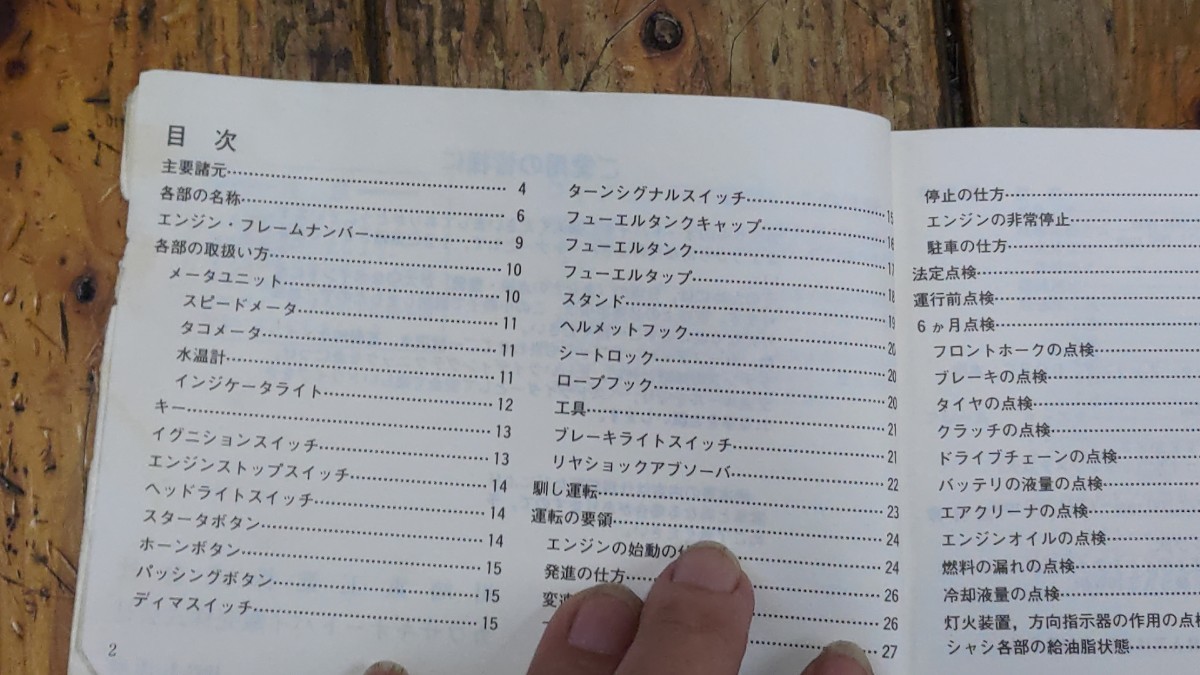 目 次
主要諸元 4
各部の名称 6
エンジン・フレームナンバー 9
各部の取扱い方 10
メータユニット 10
スピードメータ 11
タコメータ 11
水温計 11
インジケータライト 12
キー 13
イグニションスイッチ 13
エンジンストップスイッチ 14
ヘッドライトスイッチ 14
スタータボタン 14
ホーンボタン 15
パッシングボタン 15
ディマスイッチ 15
2
ターンシグナルスイッチ 15
フューエルタンクキャップ 16
フューエルタンク 17
フューエルタップ 18
スタンド 19
ヘルメットフック 20
シートロック 20
ロープフック 20
工具 21
ブレーキライトスイッチ 21
リヤショックアブソーバ 22
馴し運転 23
運転の要領 24
エンジンの始動の 24
発進の仕方 26
変速 26
27
停止の仕方
エンジンの非常停止
駐車の仕方
法定点検
運行前点検
6ヵ月点検
フロントホークの点検
ブレーキの点検
タイヤの点検
クラッチの点検
ドライブチェーンの点検
バッテリの液量の点検
エアクリーナの点検
エンジンオイルの点検
燃料の漏れの点検
冷却液量の点検
灯火装置，方向指示器の作用の点検
シャシ各部の給油脂状態